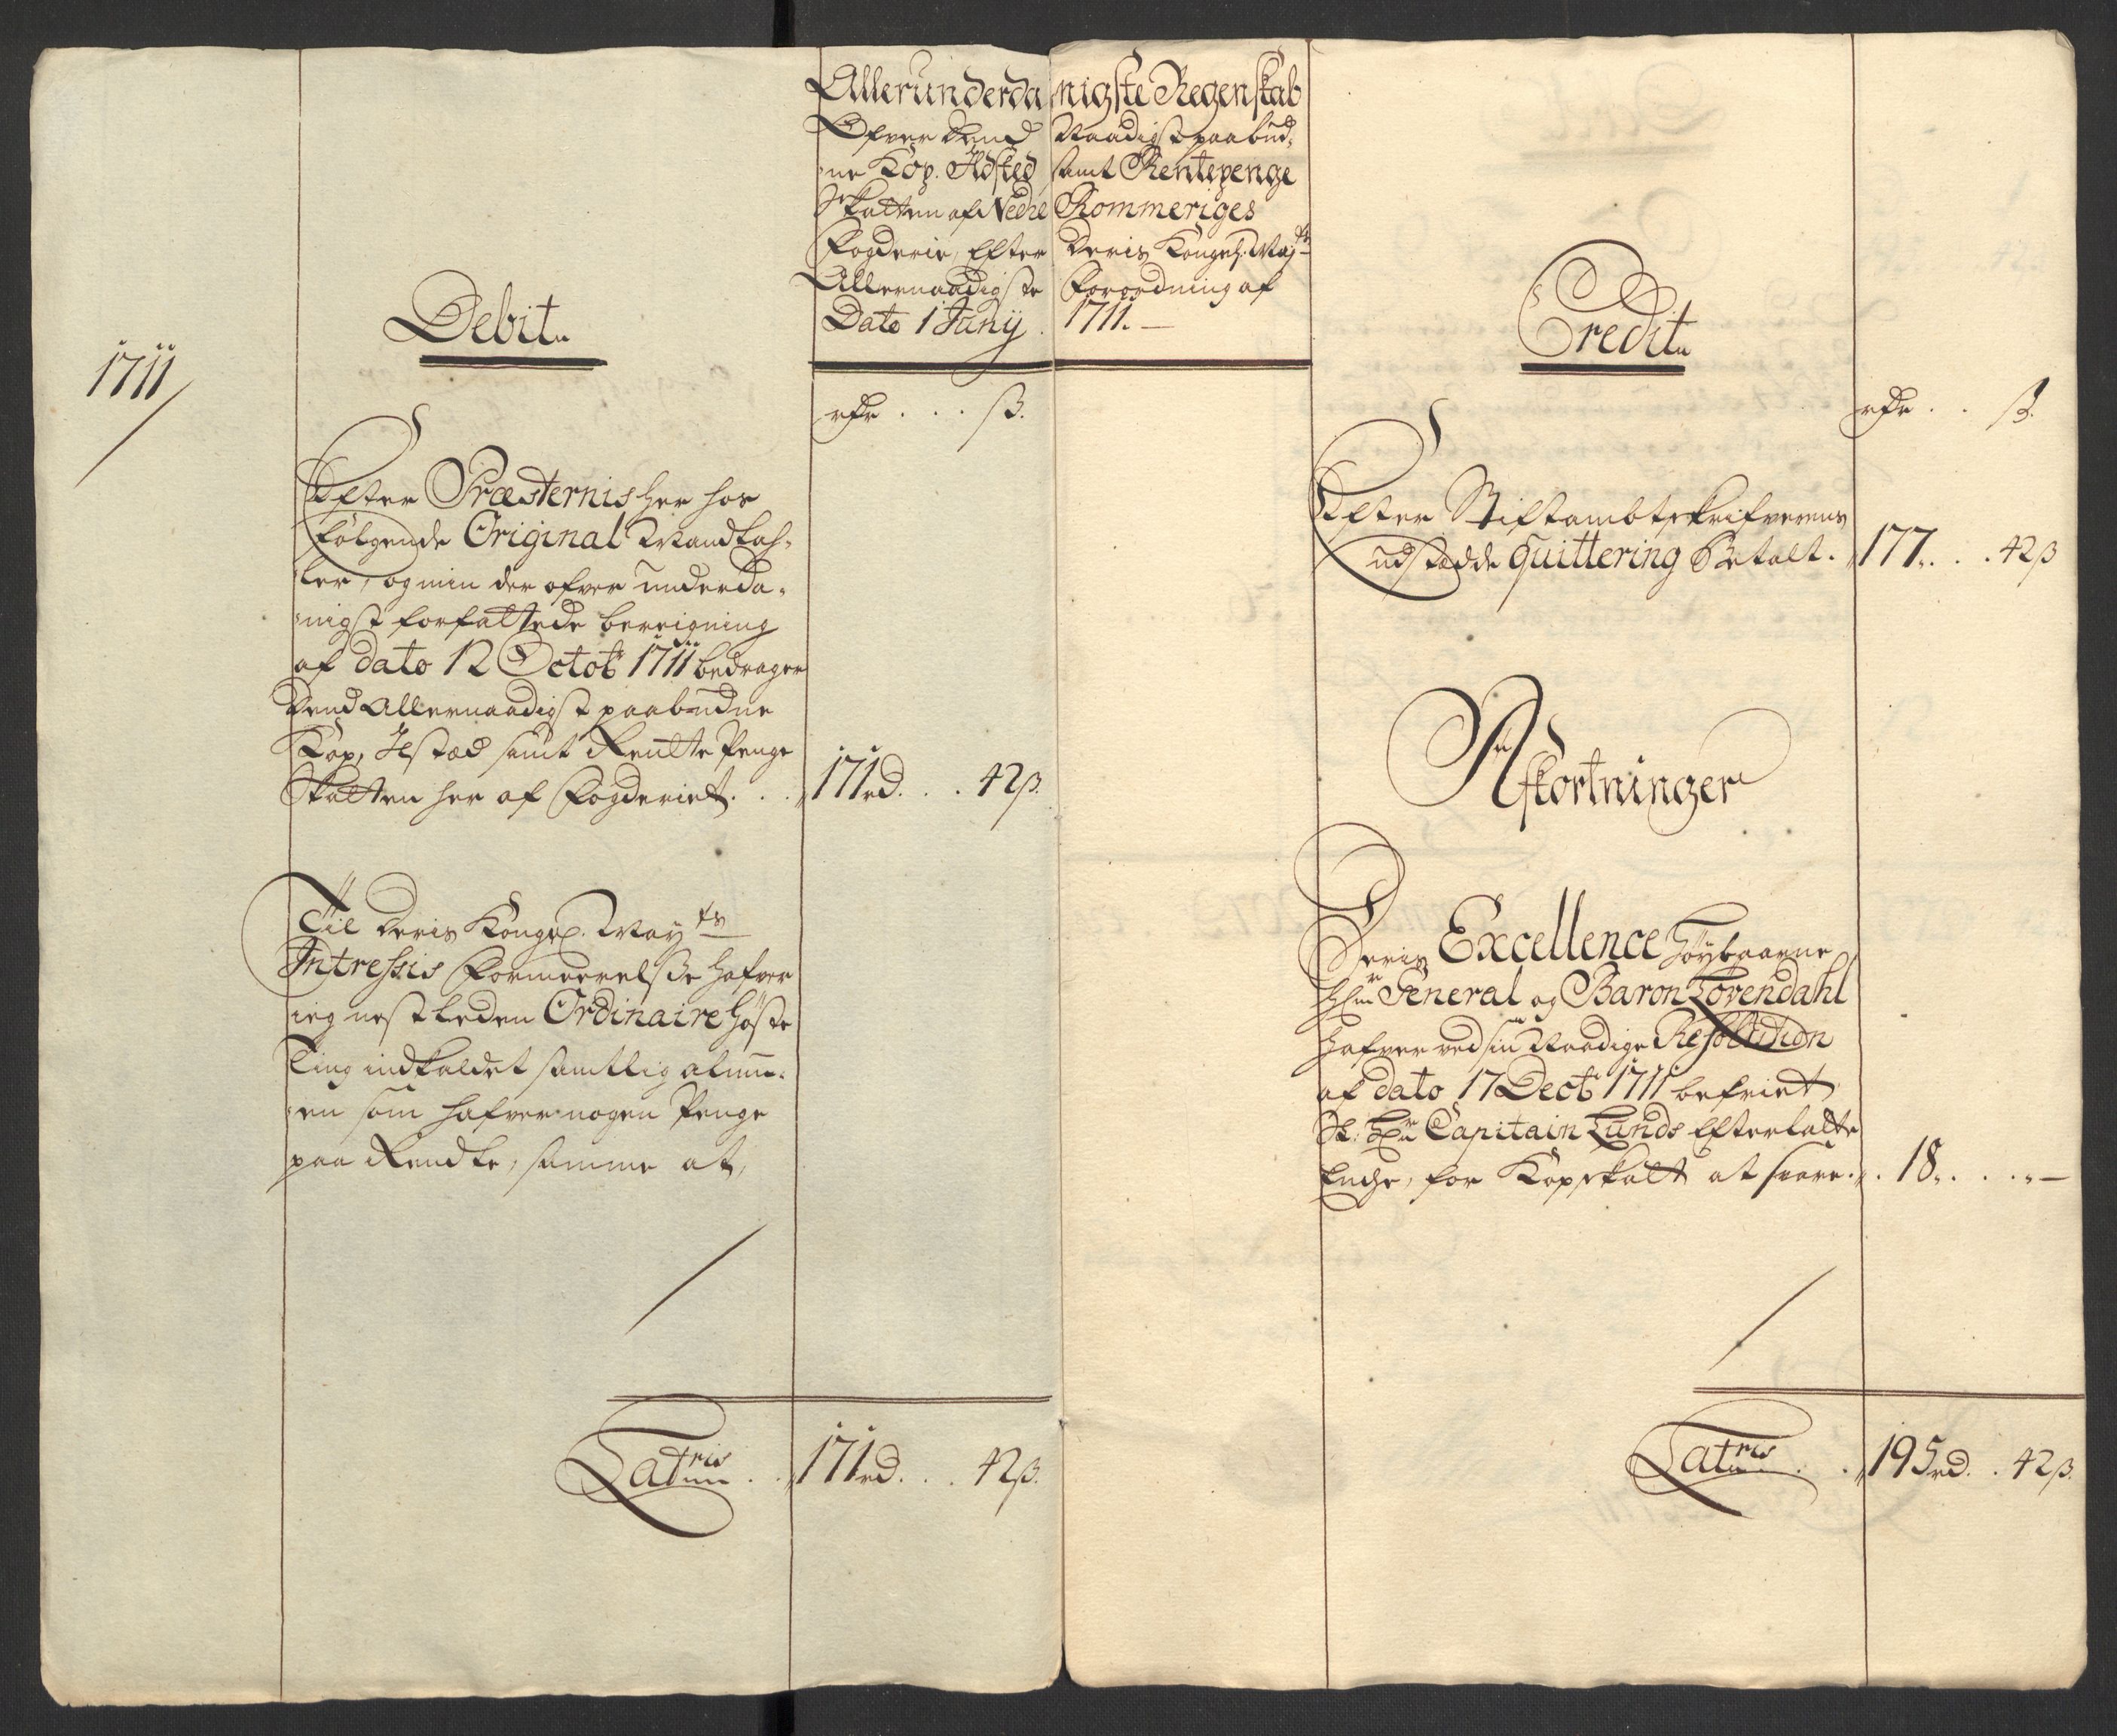 Allerunderdanigste Regenskab
Ofver dend Naadigst paabud¸
ne Kop. Ildsted samt Rentepenge
Skatten af Nedre Rommeriges
Fogderie, Efter Deris Kongel: May:ts
Allernaadigste Forordning af
Dato 1 Juny. 1711.—
1711
Debit
rdr . . . ß.
Efter Præsternis her hos
følgende Original Mandtah¸
ler, og min der ofver underda¸
nigst forfattede bereigning
af dato 12 Octobr 1711 bedrager
Dend Allernaadigst paabudne
Kop, Ilstæd samt Rentte Penge
Skatten her af Fogderiet. . . 171rd. . . 42ß.
Til Deris Kongel. May:ts
Intressis Formeerelsse hafver
ieg nest leden Ordinaire Høste
Ting indkaldet samtlig almu¸
en som hafver nogen Penge
paa Rendte, samme at,
Lateris . . 171rd. . . 42ß.
Credit
rdr . . ß.
Efter Stiftambtskrifverens
udstædde quittering Betalt. 177. . . 42ß
Afkortninger
Deris Excellence Høybaarne
Hr General og Baron Løvendahl
hafver ved sin Naadige Resolution
af dato 17 Decbr 1711 befriet
Sl: Hr Capitain Lunds Efterlatte
Enche, for Kopskatt at svare. . 18. . . . —
Lateris . . 195rd. . 42ß.